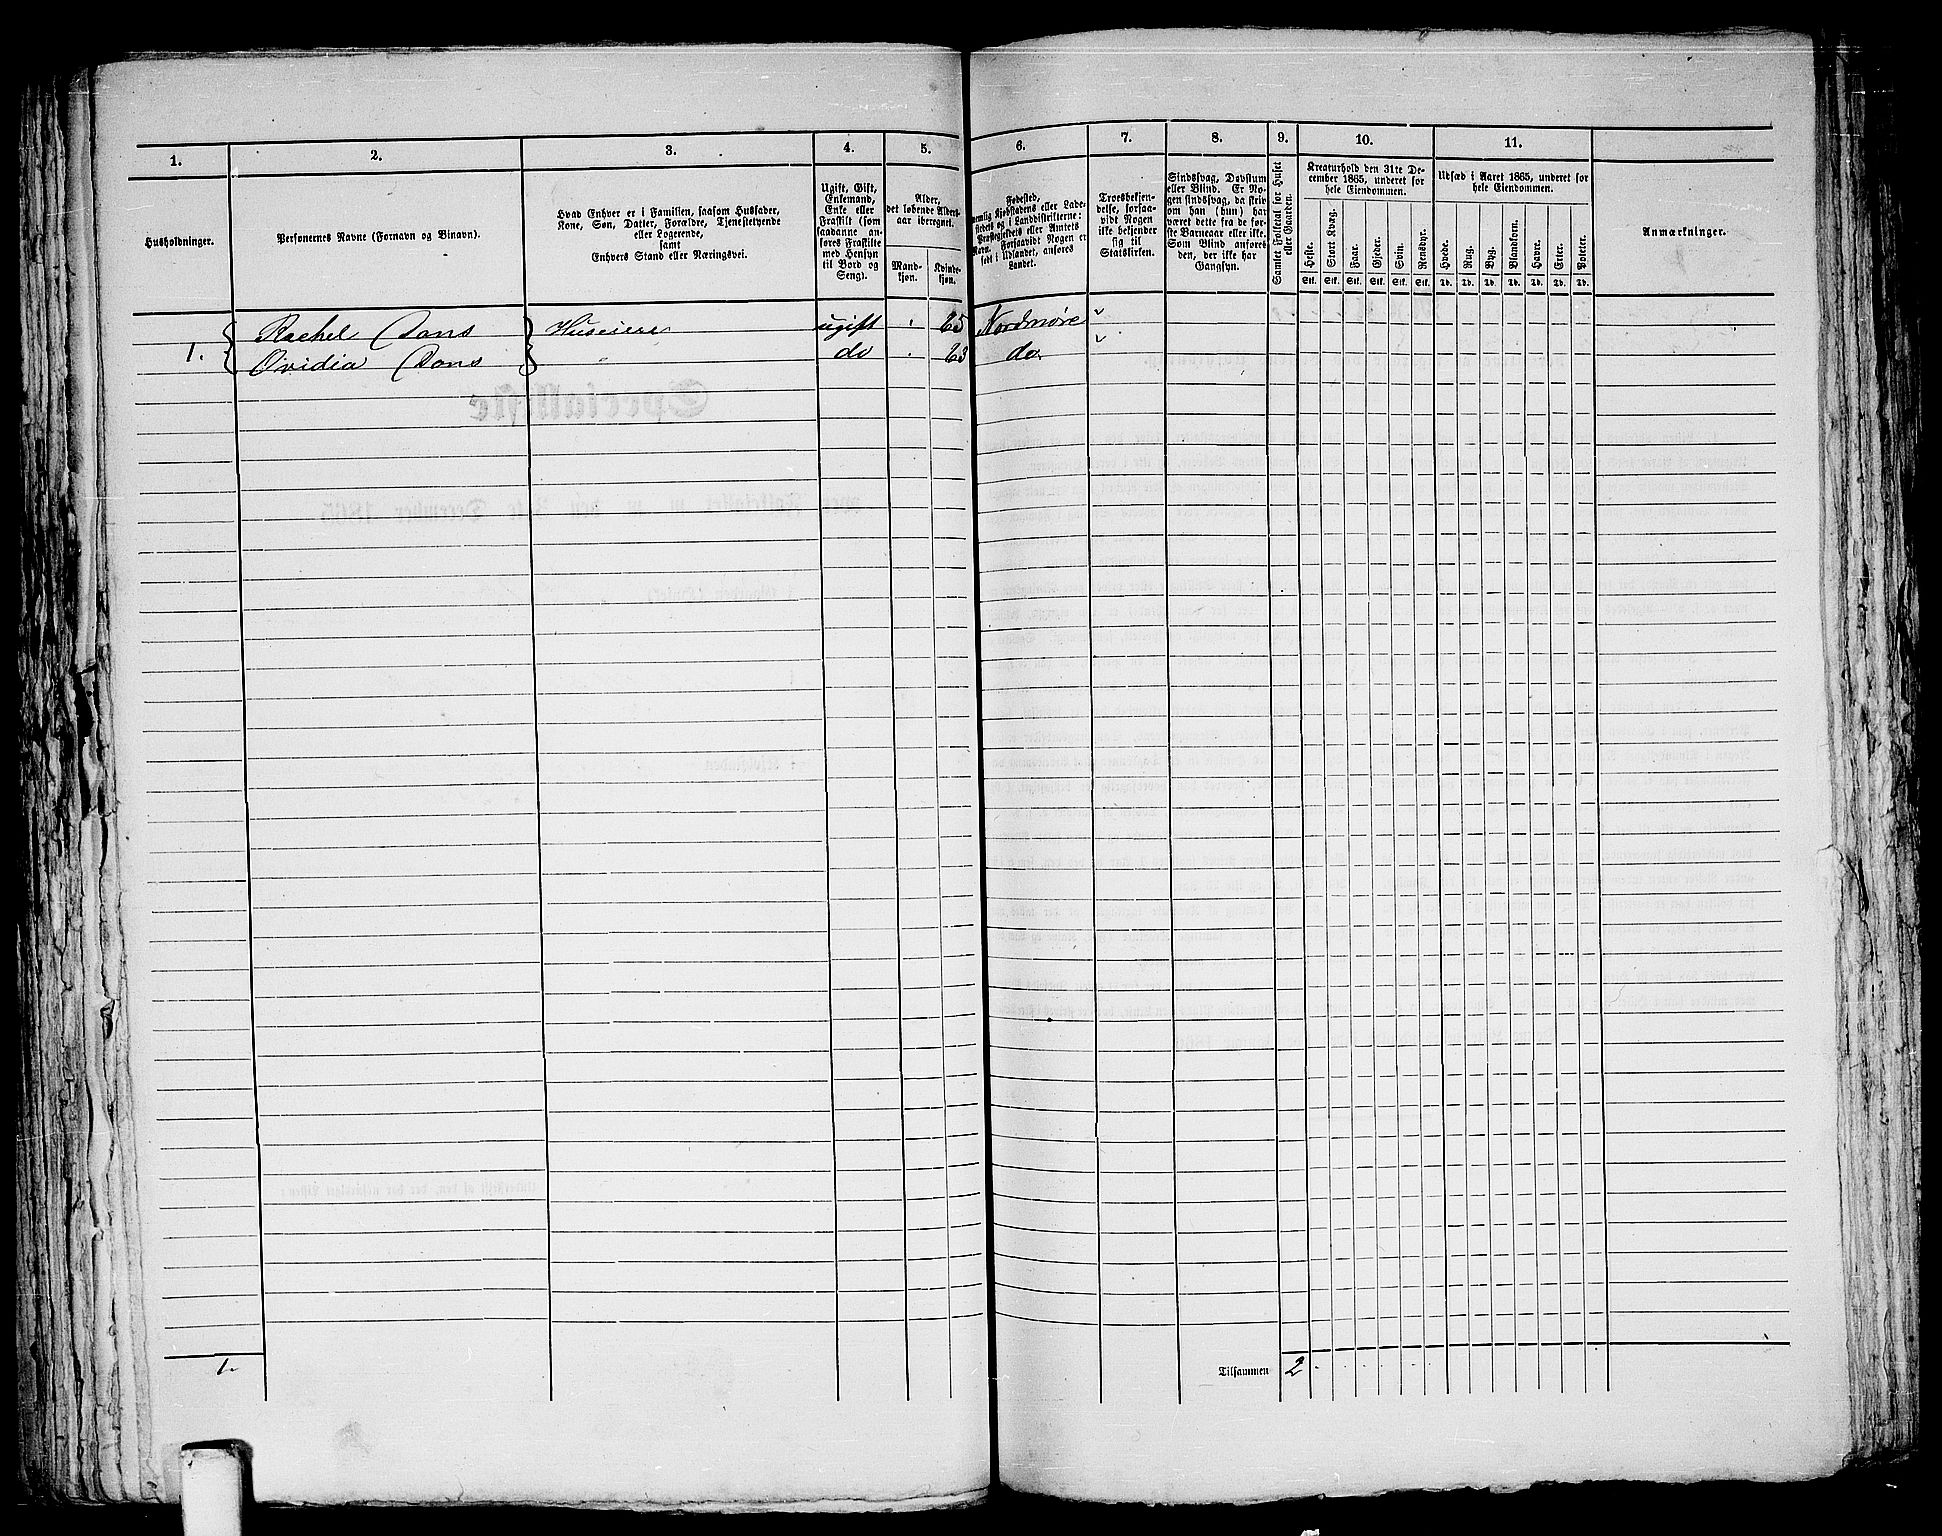 1. 2. 3. 4. 5. 6. 7. 8. 9. 10. 11.
Husholdninger.
Personernes Navne (Fornavn og Binavn).
Hvad Enhver er i Familien, saasom Husfader,
Kone, Søn, Datter, Forældre, Tjenestetyende
eller Logerende,
samt
Enhvers Stand eller Næringsvei.
Ugift, Gift,
Enkemand,
Enke eller
Fraskilt (som
saadanne an-
føres Fraskilte
med Hensyn
til Bord og
Seng).
Alder,
det løbende Alders-
aar iberegnet.
Mand-
kjøn.
Kvinde-
kjøn.
Fødested,
nemlig Kjøbstadens eller Lade-
stedets og i Landdistrikterne:
Præstegjeldets eller Amtets
Navn. Forsaavidt Nogen er
født i Udlandet, anføres
Landet.
Troesbekjen-
delse, forsaa-
vidt Nogen
ikke bekjender
sig til
Statskirken.
Sindssvag, Døvstum
eller Blind. Er No-
gen sindssvag, da skriv
om han (hun) har
været dette fra de før-
ste Barneaar eller ikke.
Som Blind anføres
den, der ikke har
Gangsyn.
Samlet Folketal for Huset
eller Gaarden.
Kreaturhold den 31te De-
cember 1865, underet for
hele Eiendommen.
Heste. Stort Kvæg. Faar. Gjeder. Svin. Rensdyr.
Stk. Stk. Stk. Stk. Stk. Stk.
Udsæd i Aaret 1865, underet for
hele Eiendommen.
Hvede. Rug. Byg. Blandkorn. Havre. Erter. Poteter.
Td. Td. Td. Td. Td. Td. Td.
Anmærkninger.
Rachel Dons Huseiere ugift 65 Nordmøre
1. Ovidia Dons " do 63 do
1. Tilsammen 2